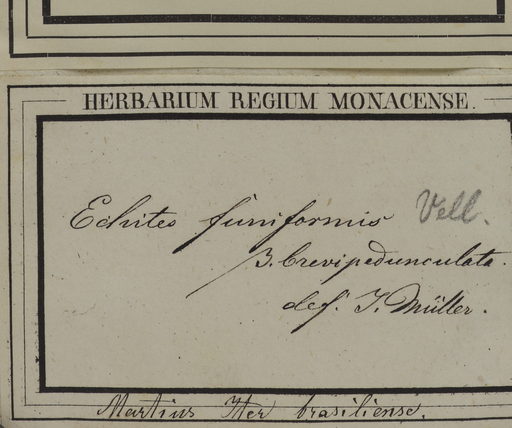 HERBARIUM REGIUM MONACENSE.
Echites funiformis Vell.
β. brevipedunculata.
def. J. Müller.
Martius Iter brasiliense.